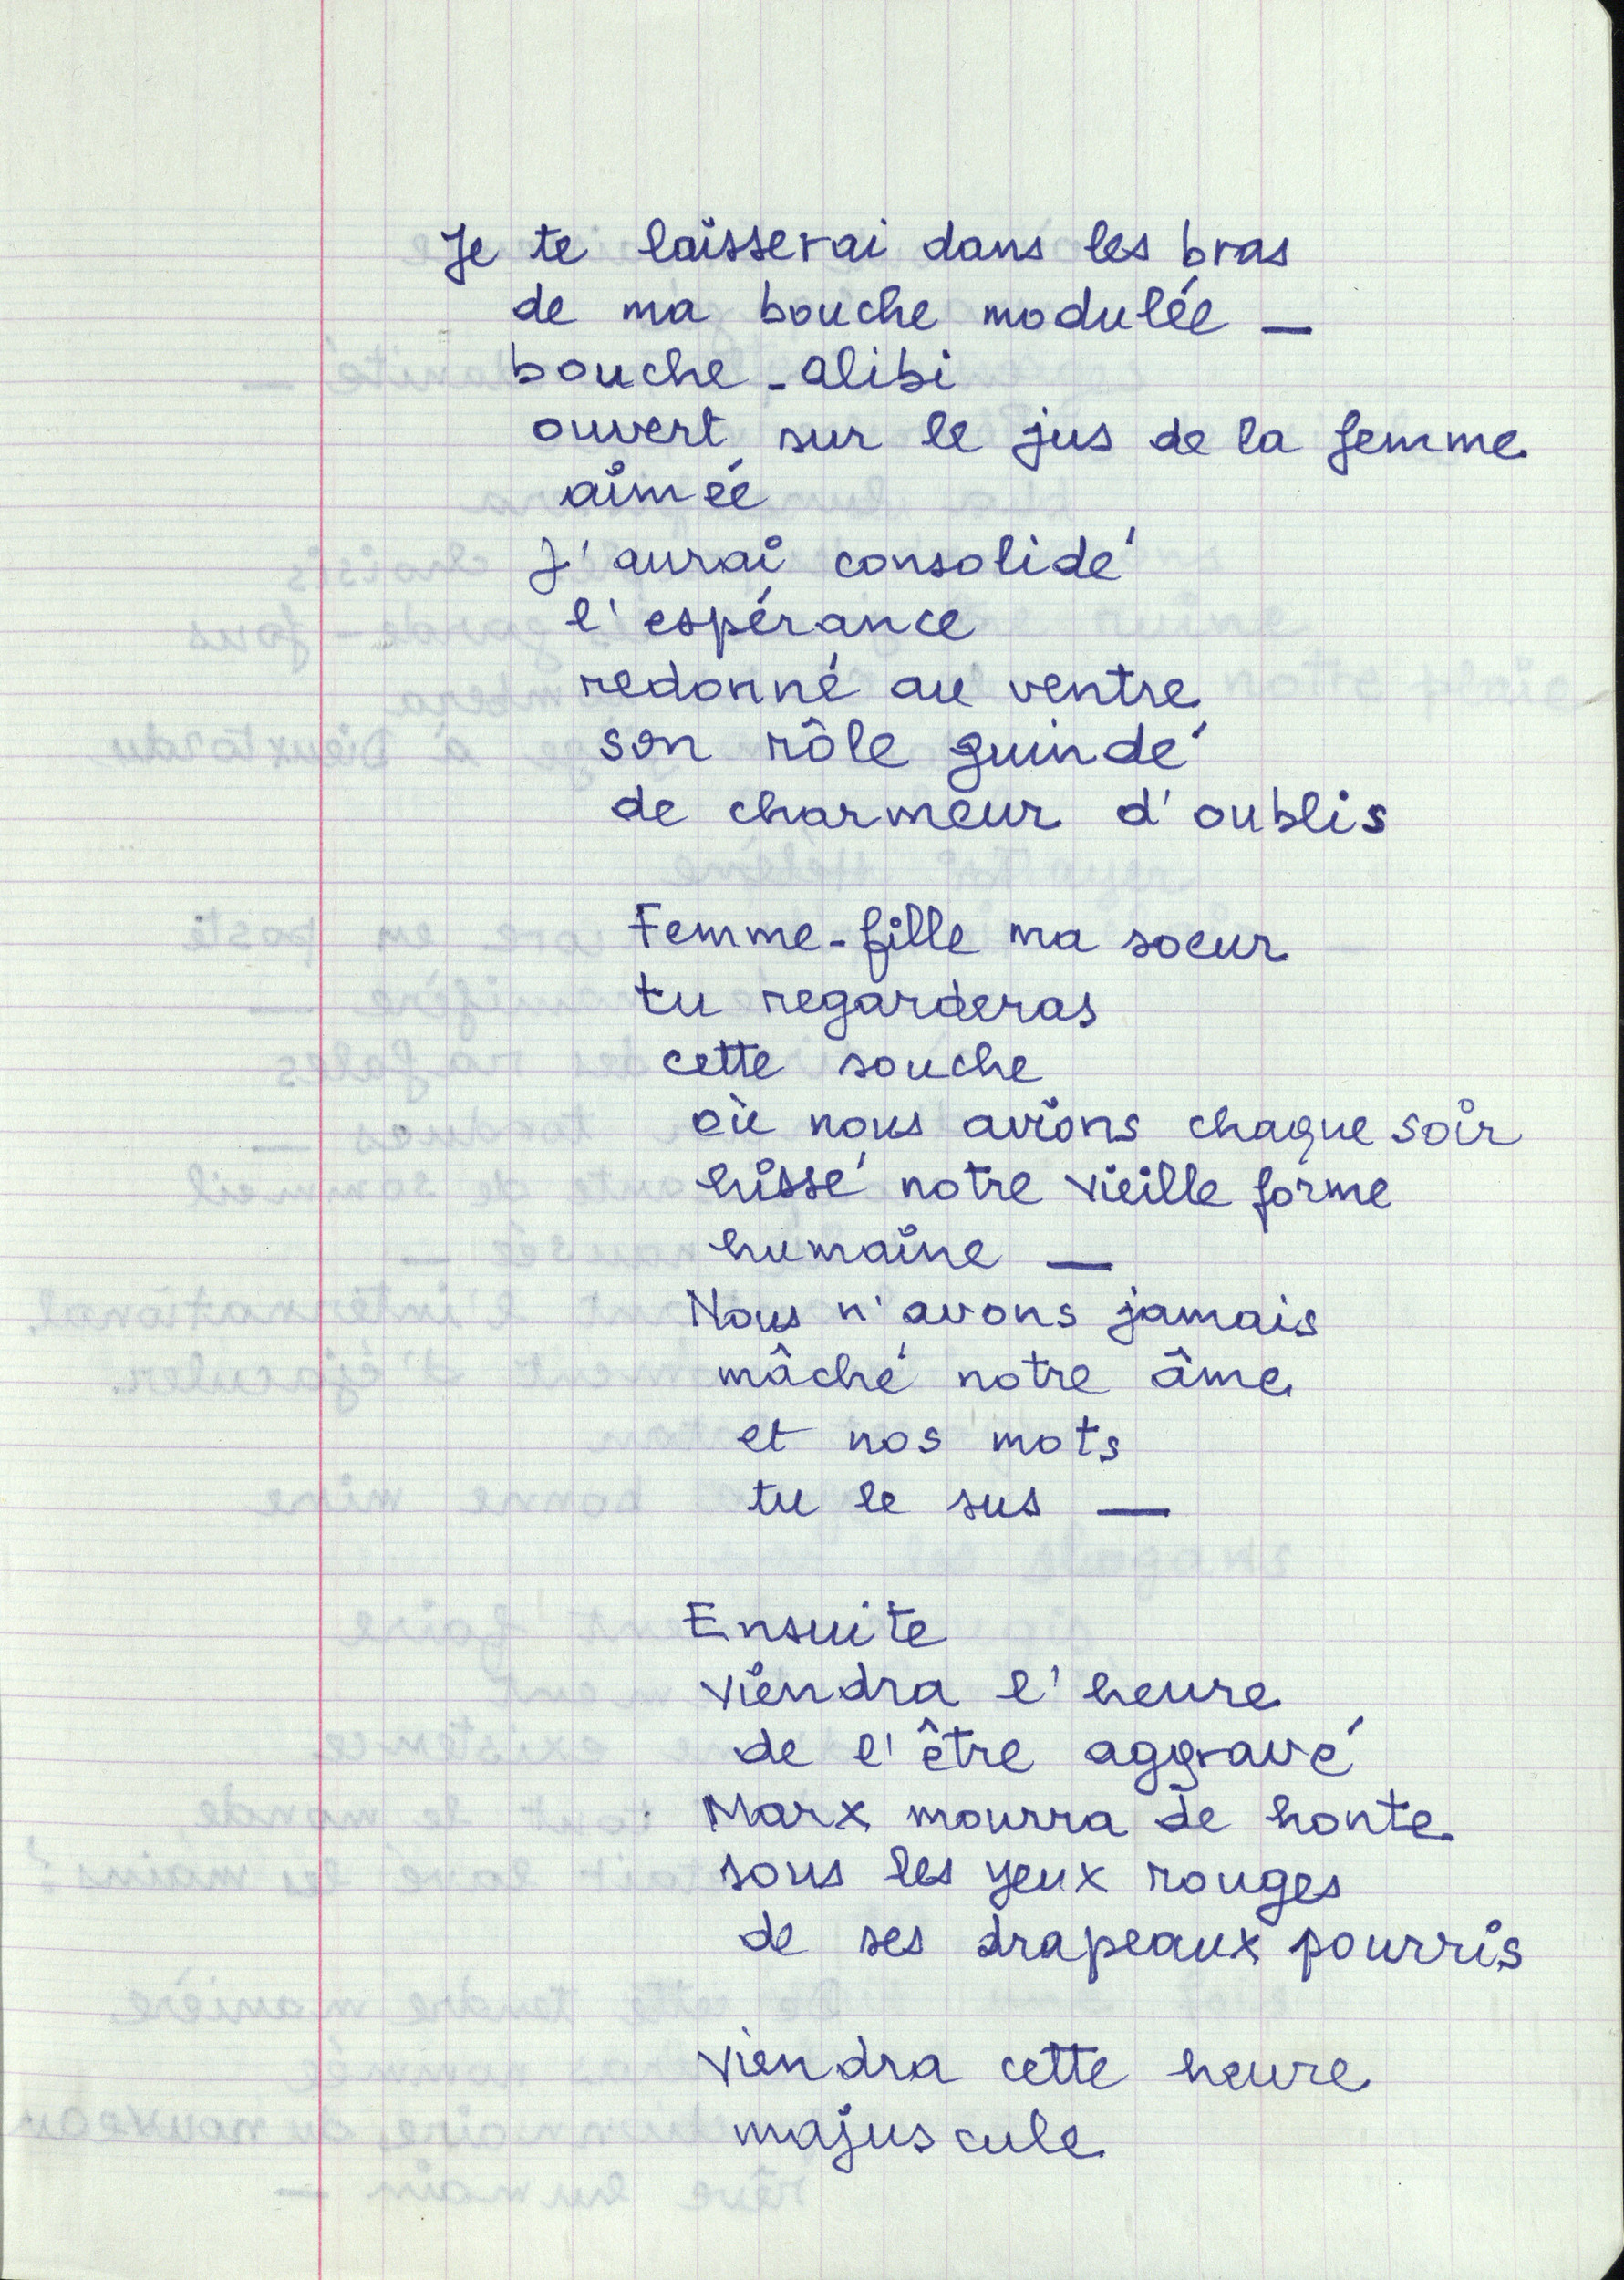 Je te laisserai dans les bras
de ma bouche modulée —
bouche-alibi
ouvert sur le jus de la femme
aimée
J'aurai consolidé
l'espérance
redonné au ventre
son rôle guindé
de charmeur d'oublis
Femme-fille ma soeur
tu regarderas
cette souche
où nous avions chaque soir
hissé notre vieille forme
humaine —
Nous n'avons jamais
mâché notre âme
et nos mots
tu le sus —
Ensuite
viendra l'heure
de l'être aggravé
Marx mourra de honte
sous les yeux rouges
de ses drapeaux pourris
viendra cette heure
majuscule